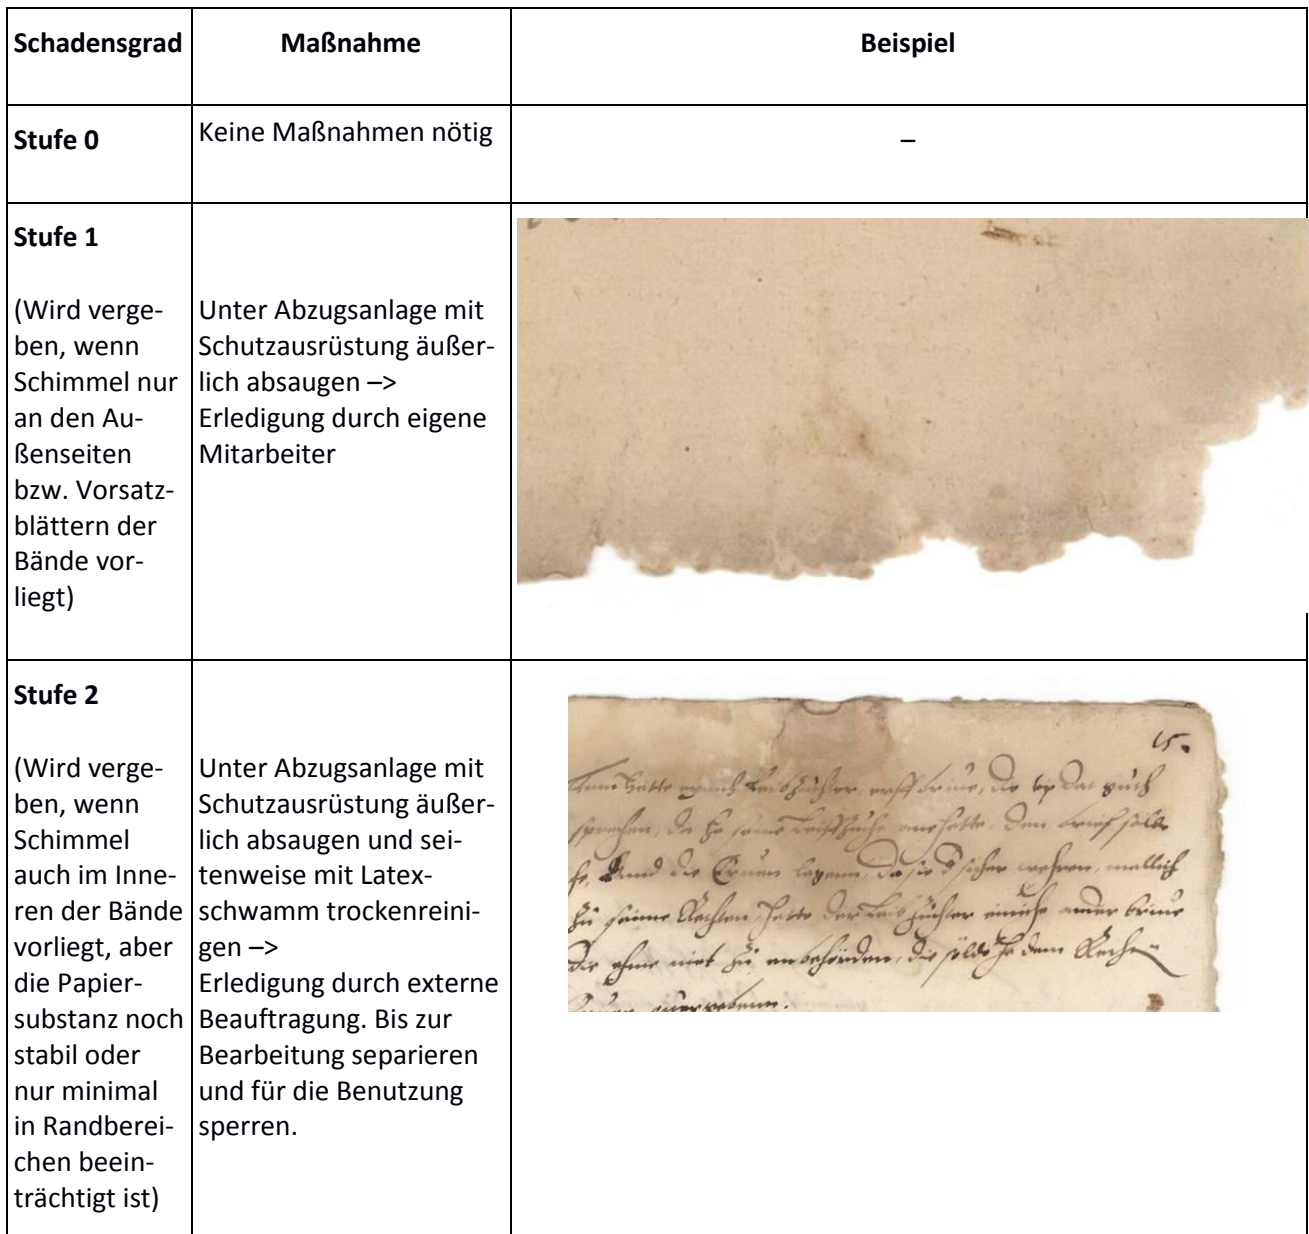 Schadensgrad Maßnahme Beispiel
Stufe 0 Keine Maßnahmen nötig –
Stufe 1
(Wird verge-
ben, wenn
Schimmel nur
an den Au-
ßenseiten
bzw. Vorsatz-
blättern der
Bände vor-
liegt)
Unter Abzugsanlage mit
Schutzausrüstung äußer-
lich absaugen –>
Erledigung durch eigene
Mitarbeiter
Stufe 2
(Wird verge-
ben, wenn
Schimmel
auch im Inne-
ren der Bände
vorliegt, aber
die Papier-
substanz noch
stabil oder
nur minimal
in Randberei-
chen beein-
trächtigt ist)
Unter Abzugsanlage mit
Schutzausrüstung äußer-
lich absaugen und sei-
tenweise mit Latex-
schwamm trockenreini-
gen –>
Erledigung durch externe
Beauftragung. Bis zur
Bearbeitung separieren
und für die Benutzung
sperren.
15.